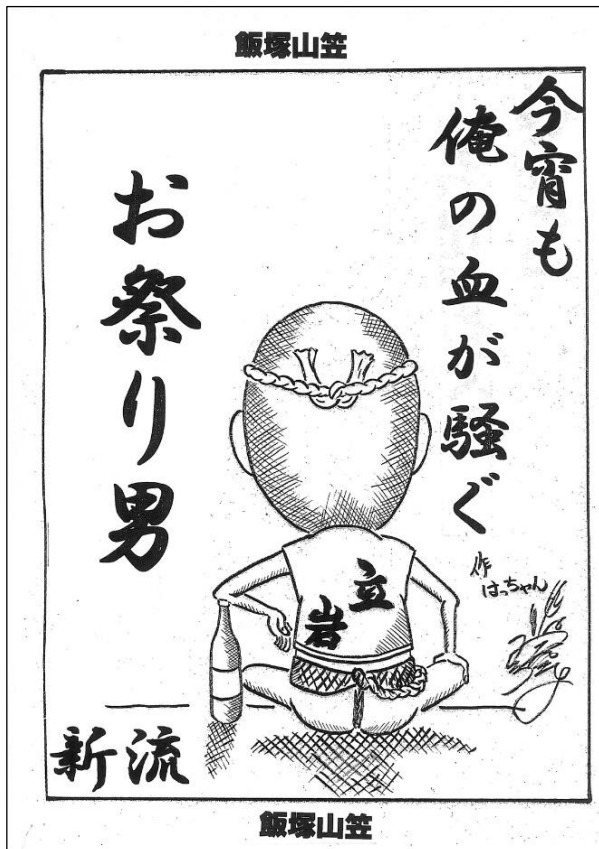 飯塚山笠
今宵も
俺の血が騒ぐ
お祭り男
作
はっちゃん
立
岩
新流
飯塚山笠